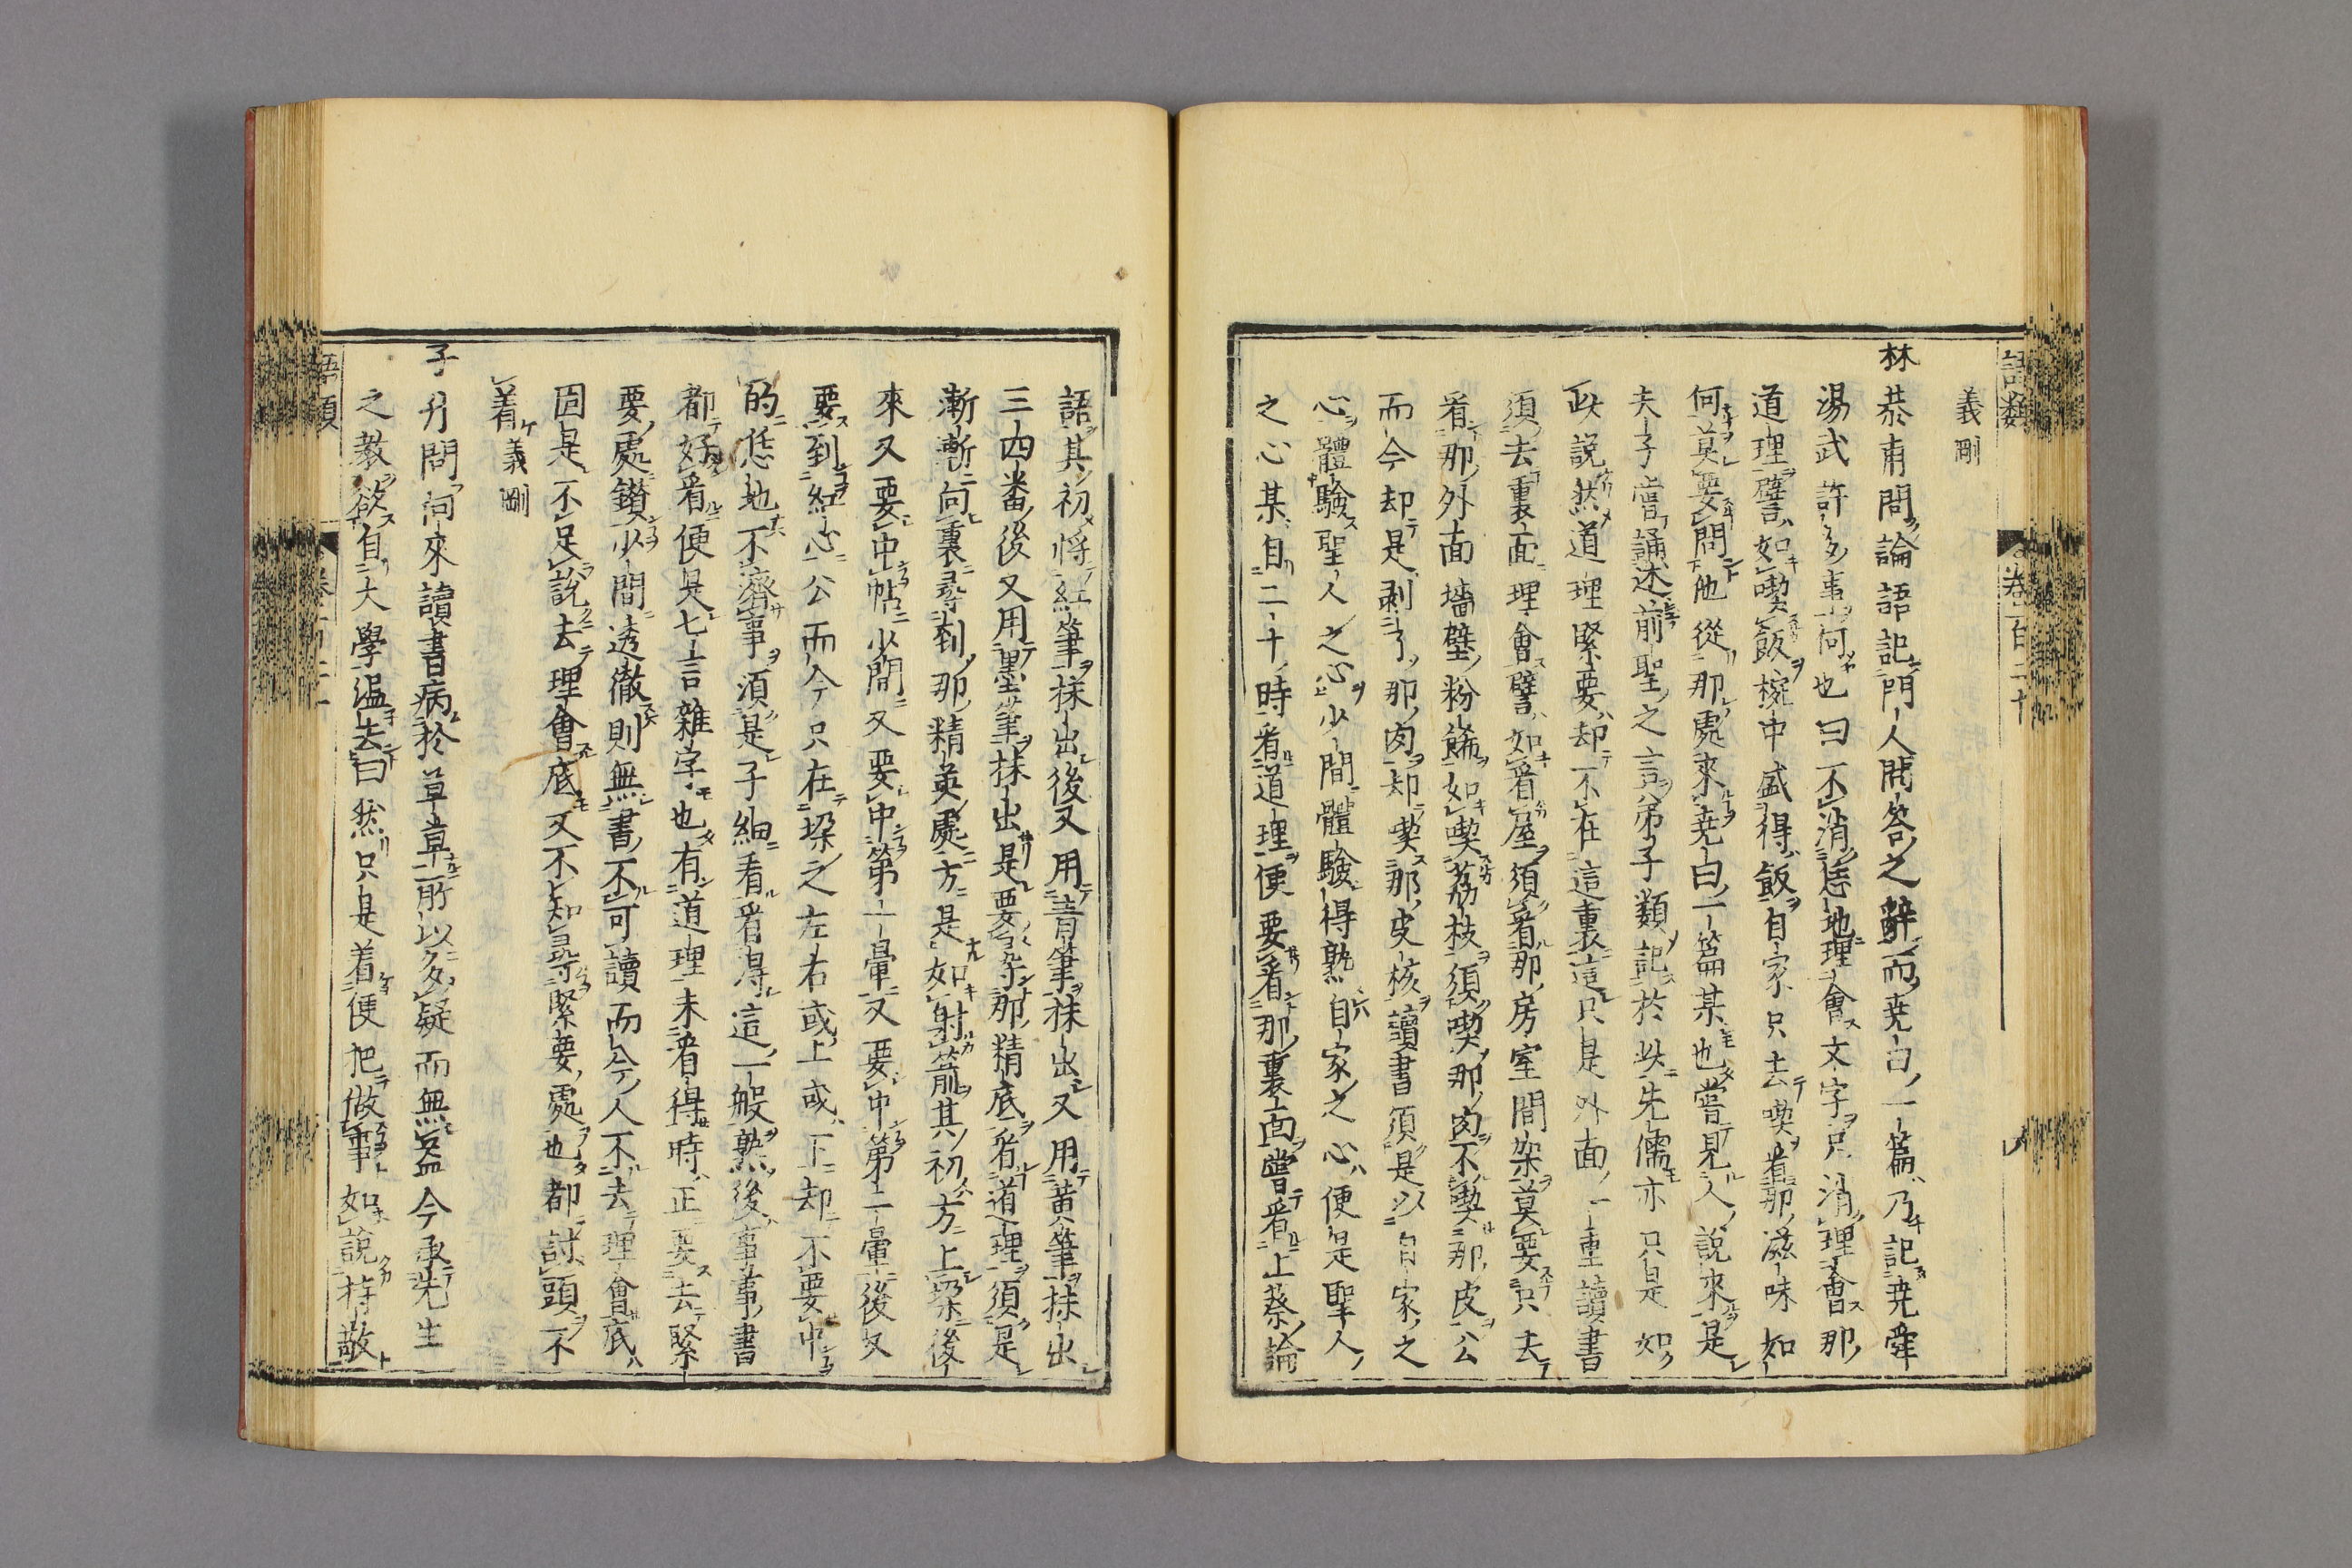 語類
卷百二十
義剛
林恭甫問論語記門人問答之辭而堯曰一篇乃記堯舜
湯武許多事何也曰不消恁地理會文字只消理會那
道理譬如喫飯椀中盛得飯自家只去喫看那滋味如
何莫要問他從那處來堯曰一篇某也嘗見人說來是
夫子嘗誦述前聖之言弟子類記於此先儒亦只是如
此說然道理緊要却不在這裏這只是外面一重讀書
須去裏面理會譬如看屋須看那房室間架莫要只去
看那外面墻壁粉飾如喫荔枝須喫那肉不喫那皮公
而今却是剥了那肉却喫那皮核讀書須是以自家之
心體驗聖人之心少間體驗得熟自家之心便是聖人
之心某自二十時看道理便要看那裏面嘗看上蔡論
語其初將紅筆抹出後又用青筆抹出又用黃筆抹出
三四番後又用墨筆抹出是要尋那精底看道理須是
漸漸向裏尋到那精英處方是如射箭其初方上垜後
來又要中帖少間又要中第一暈又要中第二暈後又
要到紅心公而今只在垜之左右或上或下却不要中
的恁地不濟事須是子細看看得這一般熟後事事書
都好看便是七言雜字也有道理未看得時正要去緊
要處鑽少間透徹則無書不可讀而今人不去理會底
固是不足說去理會底又不知尋緊要處也都討頭不
着義剛
子升問向來讀書病於草草所以多疑而無益今承先生
之教欲自大學溫去曰然只是着便把做事如說持敬
語類